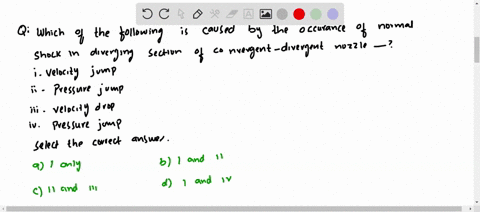 Q: Which of the following is caused by the occurance of normal
shock in diverging section of convergent-divergent nozzle —?
i. Velocity jump
ii. Pressure jump
iii. velocity drop
iv. Pressure jump
select the correct answer.
a) I only
b) I and II
c) II and III
d) I and IV